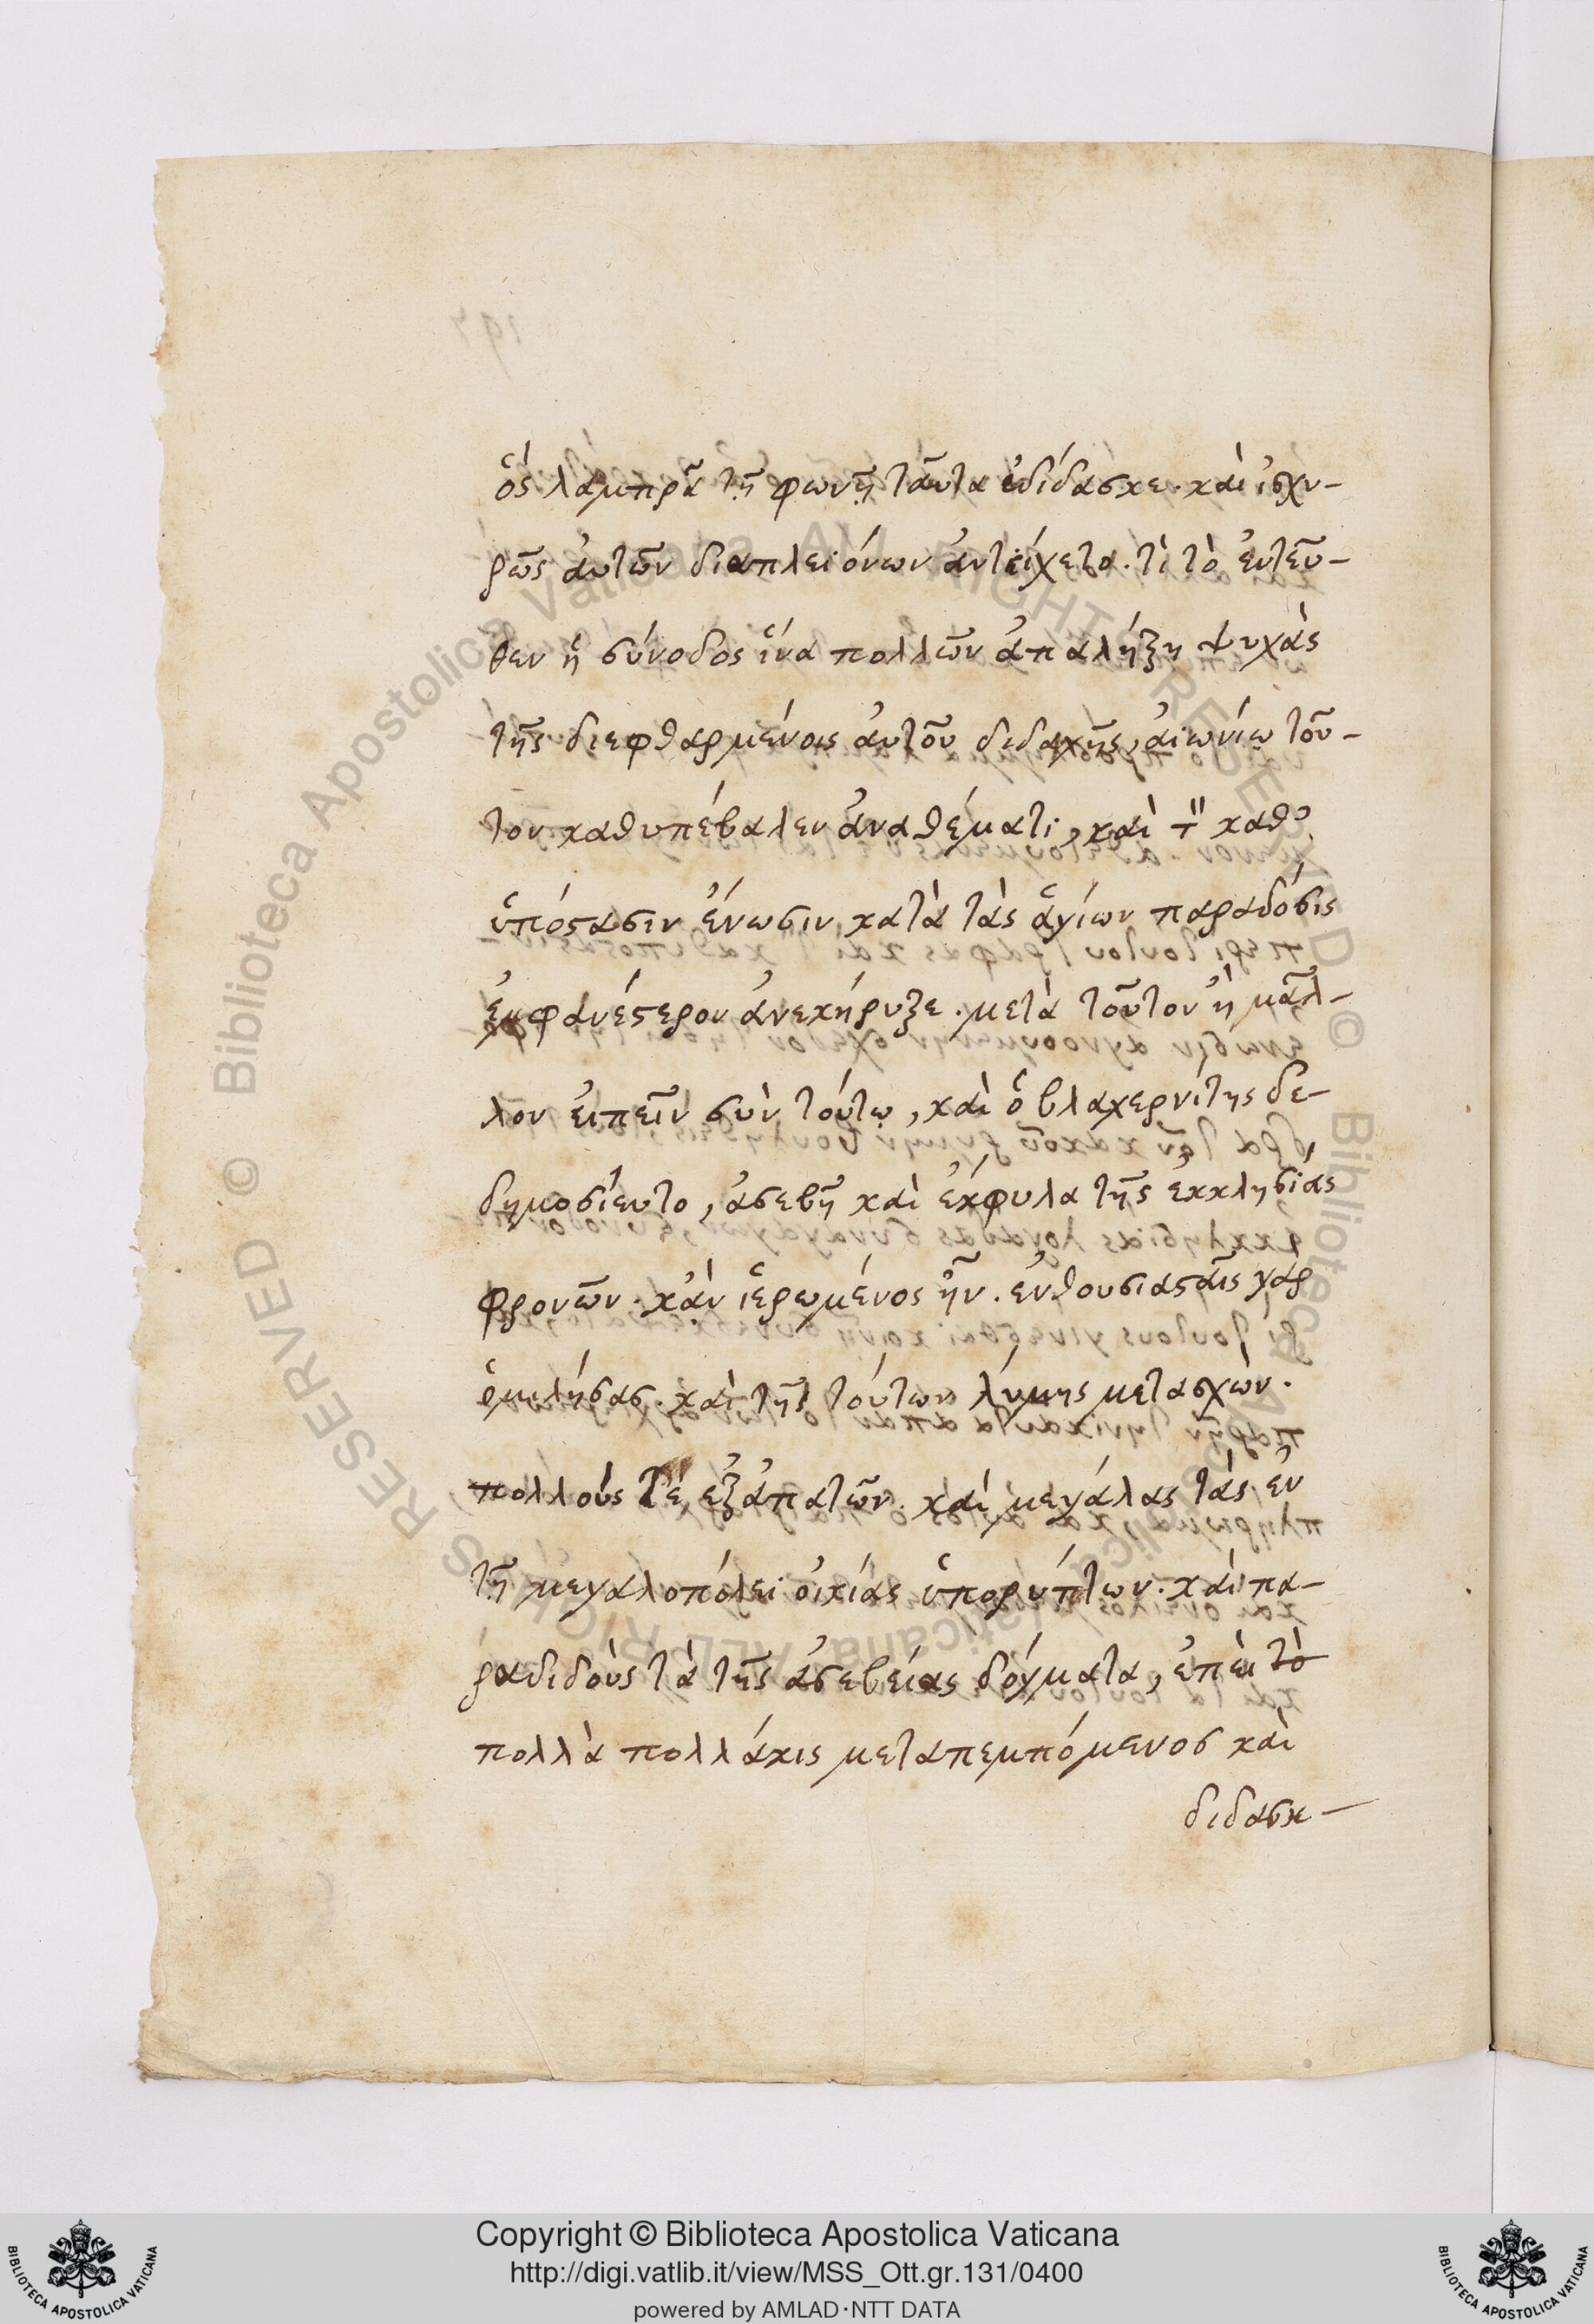 ὃς λαμπρᾶ τῇ φωνῇ ταῦτα ἐδίδασκε. καὶ ἰσχυ-
ρῶς ἀυτῶν διαπλειόνων ἀντείχετο. τὶ τὸ ἐντεῦ-
θεν ἡ σύνοδος ἵνα πολλῶν ἀπαλήξη ψυχὰς
τῆς διεφθαρμένοις ἀυτοῦ διδαχῆς, ἀιωνίω τοῦ-
τον καθυπέβαλεν ἀναθέματι, καὶ τ̏ καθ᾽
ὑπόστασιν ἕνωσιν κατὰ τὰς ἁγίων παραδόσις
ἐμφανέστερον ἀνεκήρυξε. μετὰ τοῦτον ἢ μᾶλ-
λον ἐιπεῖν σὺν τούτῳ, καὶ ὁ βλαχερνίτης δε-
δημοσίευτο, ἀσεβῆ καὶ ἔκφυλα τῆς ἐκκλησίας
φρονῶν. κἀν ἱερωμένος ἦν. ἐνθουσιασταῖς γὰρ
ὁμιλήσας. καὶ τῆς τούτων λύμης μετασχὼν.
πολλούς τέ ἐξἀπατῶν. καὶ μεγάλας τὰς ἐν
τῇ μεγαλοπόλει ὀικίας ὑπορύπτων. καὶ πα-
ραδιδοὺς τὰ τῆς ἀσεβείας δόγματα, ἐπεὶ τὸ
πολλὰ πολλάκις μεταπεμπόμενοσ καὶ
διδασκ-
Copyright © Biblioteca Apostolica Vaticana
http://digi.vatlib.it/view/MSS_Ott.gr.131/0400
powered by AMLAD·NTT DATA
BIBLIOTECA APOSTOLICA VATICANA
BIBLIOTECA APOSTOLICA VATICANA